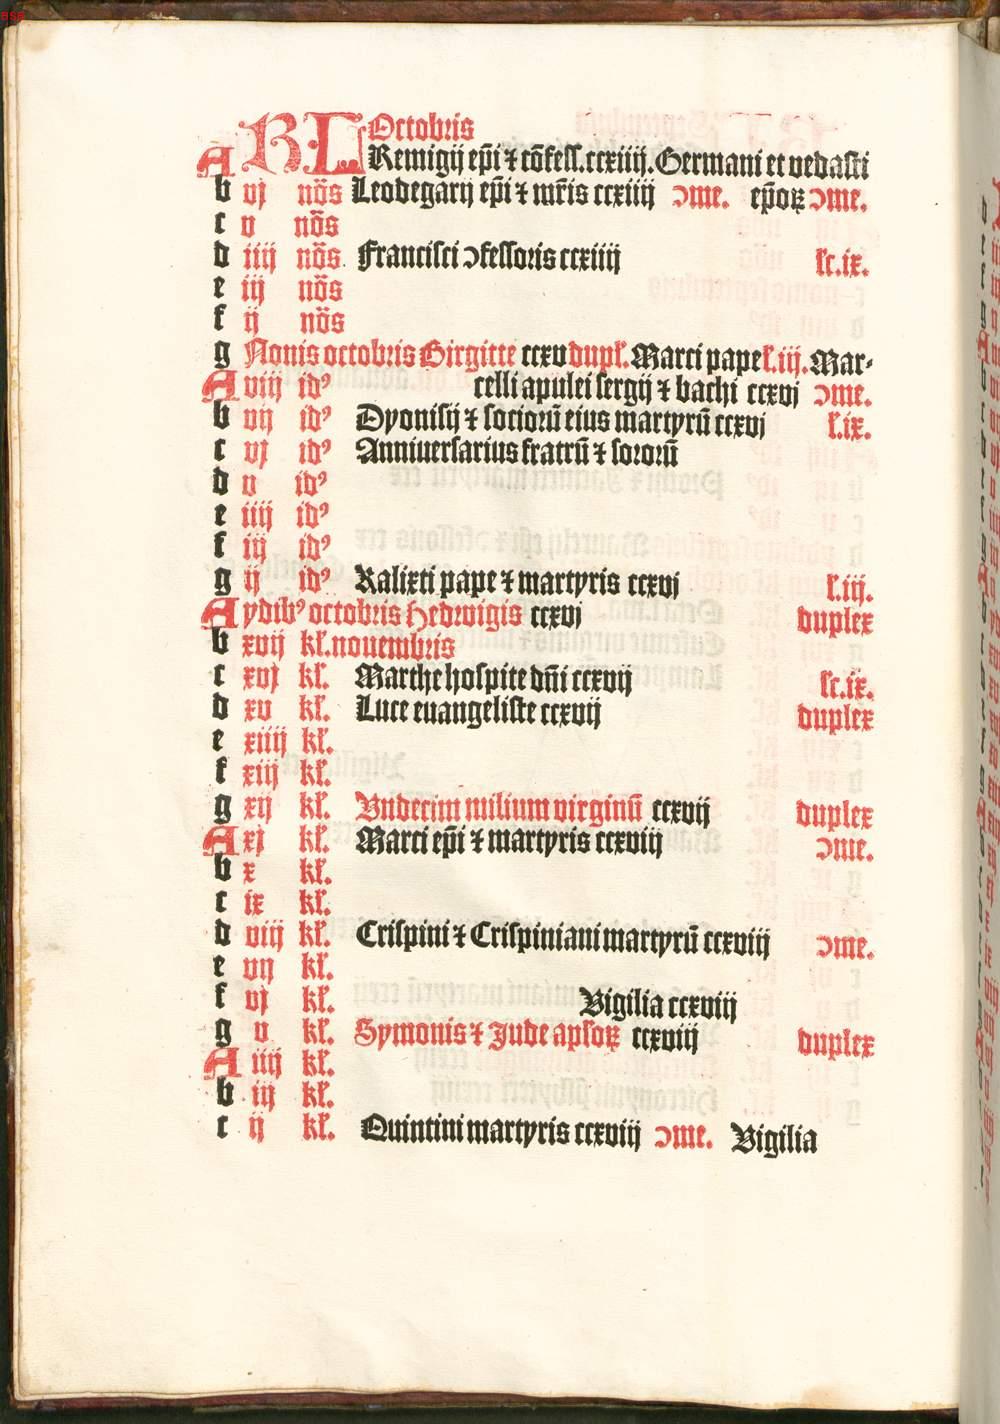 BSB
KL Octobris
A Remigij ep̄i ⁊ cōfess. ccxiiij. Germani et vedasti
b vj nōs Leodegarij ep̄i ⁊ mr̄is ccxiiij ɔme. ep̄oꝝ ɔme.
c v nōs
d iiij nōs Francisci ɔfessoris ccxiiij sc. ix.
e iij nōs
f ij nōs
g Nonis octobris Birgitte ccxv dupł. Marci pape ł. iij. Mar-
A viij idꝰ celli apulei sergij ⁊ bachi ccxvj ɔme.
b vij idꝰ Dyonisij ⁊ sociorū eius martyrū ccxvj ł. ix.
c vj idꝰ Anniuersarius fratrū ⁊ sororū
d v idꝰ
e iiij idꝰ
f iij idꝰ
g ij idꝰ Kalixti pape ⁊ martyris ccxvj ł. iij.
A ydibꝰ octobris Hedwigis ccxvj duplex
b xvij kł. nouembris
c xvj kł. Marthe hospite dn̄i ccxvij sc. ix.
d xv kł. Luce euangeliste ccxvij duplex
e xiiij kł.
f xiij kł.
g xij kł. Vndecim milium virginū ccxvij duplex
A xj kł. Marci ep̄i ⁊ martyris ccxviij ɔme.
b x kł.
c ix kł.
d viij kł. Crispini ⁊ Crispiniani martyrū ccxviij ɔme.
e vij kł.
f vj kł. Vigilia ccxviij
g v kł. Symonis ⁊ Jude apl̄oꝝ ccxviij duplex
A iiij kł.
b iij kł.
c ij kł. Quintini martyris ccxviij ɔme. Vigilia